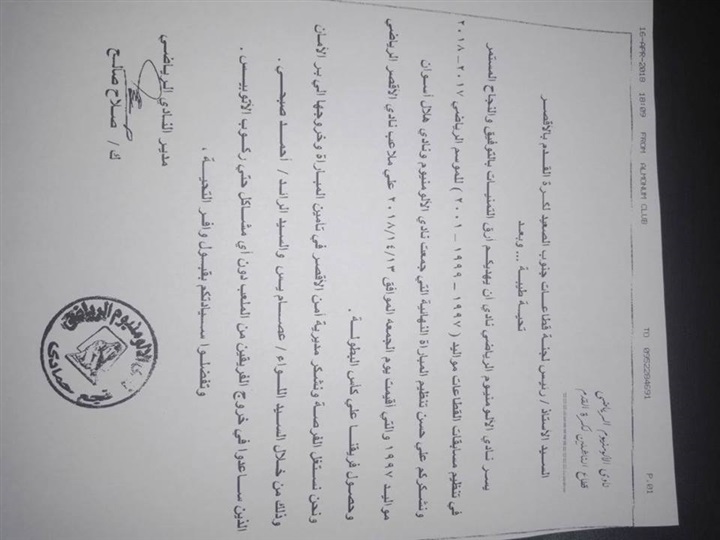 16-APR-2018 18:09 FROM ALMONUM CLUB TO 0952284691 P.01
نادى الألومنيوم الرياضى
قطاع الناشئين لكرة القدم
السيد الأستاذ / رئيس لجنة قطاعات جنوب الصعيد لكرة القدم بالأقصر
تحية طيبة ... وبعد
يسر نادي الألومنيوم الرياضي نادى ان يهديكم ارق التمنيات بالتوفيق والنجاح المستمر
في تنظيم مسابقات القطاعات مواليد ( ١٩٩٧ – ١٩٩٩ – ٢٠٠١ ) للموسم الرياضي ٢٠١٧ – ٢٠١٨
ونشكركم على حسن تنظيم المباراة النهائية التي جمعت نادي الألومنيوم ونادي هلال أسوان
مواليد ١٩٩٧ والتي أقيمت يوم الجمعه الموافق ٢٠١٨/١٤/١٣ على ملاعب نادي الأقصر الرياضي
وحصول فريقنا على كاس البطولة .
ونحن نستغل الفرصة ونشكر مديرية أمن الأقصر في تامين المباراة وخروجها الي بر الأمان
وذلك من خلال السيد اللواء / عصام يس والسيد الرائد / أحمد صبحي .
الذين ساعدوا في خروج الفريقين من الملعب دون أي مشاكل حتي ركوب الأتوبيس .
وتفضلوا سيادتكم بقبول وافر التحية .
مدير النادى الرياضي
ك / صلاح صالح
الألومنيوم الرياضى
نجع حمادى